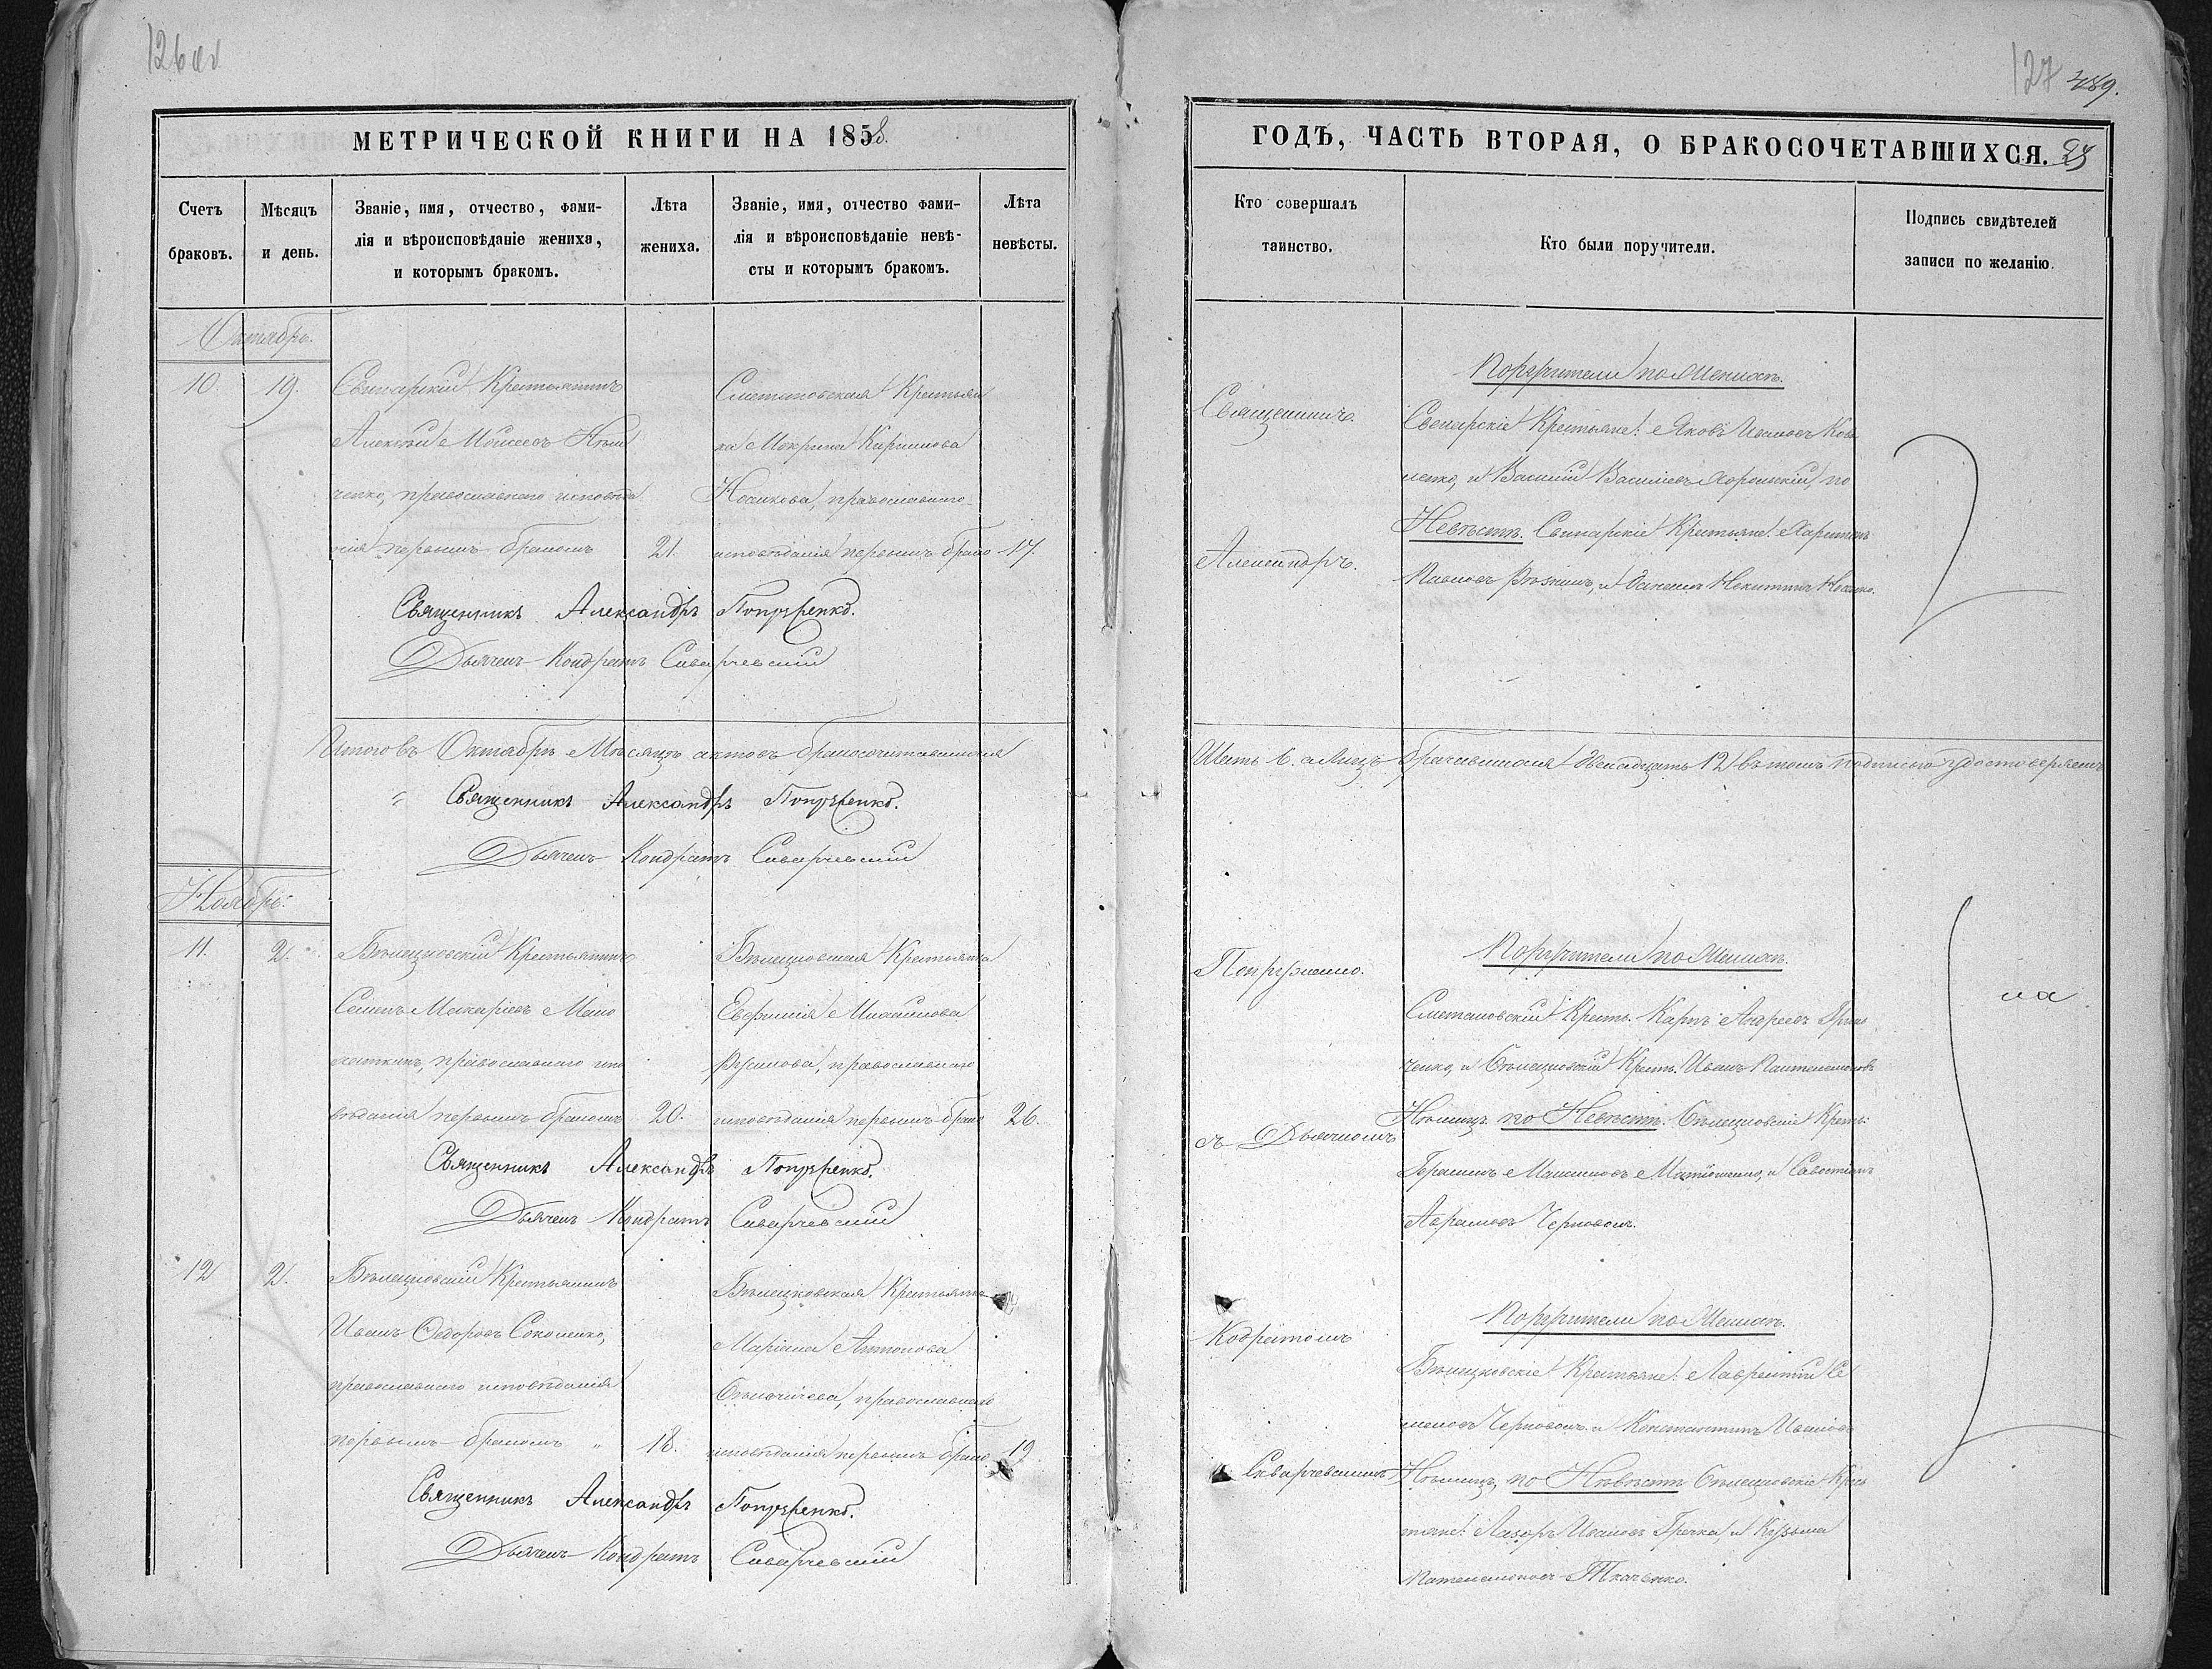 126 об
МЕТРИЧЕСКОЙ КНИГИ НА 1858.
Счетъ браковъ.
Мѣсяцъ и день.
Званіе, имя, отчество, фами-
лія и вѣроисповѣданіе жениха,
и которымъ бракомъ.
Лѣта жениха.
Званіе, имя, отчество фами-
лія и вѣроисповѣданіе невѣ-
сты и которымъ бракомъ.
Лѣта невѣсты.
Октябрь.
10. 19.
Свинарскій Крестьянинъ
Алексѣй Моисеевъ
ченко, православнаго исповѣда
нія первымъ бракомъ
21.
Сметановская Крестьян
ка Мокрина Кирилова
Носикова, православнаго
исповѣданія первымъ брако
17.
Священникъ Александръ Попруженко.
Дьячекъ Кондратъ Скварчевскій
Итого въ Октябрѣ Мѣсяцѣ актовъ бракосочетавшихся
Священникъ Александръ Попруженко.
Дьячекъ Кондратъ Скварчевскій
Ноябрь:
11. 2.
Бѣлецковскій Крестьянинъ
Семенъ Макаріевъ
православнаго испо
вѣданія первымъ бракомъ
20.
Бѣлецковская Крестьянка
Евфимія
Русинова, православнаго
исповѣданія первымъ брако
26.
Священникъ Александръ Попруженко.
Дьячекъ Кондратъ Скварчевскій
12 2.
Бѣлецковскій Крестьянинъ
Иванъ Федоровъ Соколенко,
православнаго исповѣданія
первымъ бракомъ "
18.
Бѣлецковская Крестьянка
Маріана Антонова
православнаго
исповѣданія первымъ брако
19
Священникъ Александръ Попруженко.
Дьячекъ Кондратъ Скварчевскій
127 489.
ГОДЪ, ЧАСТЬ ВТОРАЯ, О БРАКОСОЧЕТАВШИХСЯ.
Кто совершалъ таинство.
Кто были поручители.
Подпись свидѣтелей записи по желанію.
Священникъ
Александръ.
Поручители по Женихѣ.
Свинарскіе Крестьяне: Яковъ Ивановъ Ков
ленко, и Василій Василіевъ Хорольскій, по
Невѣстѣ. Свинарскіе Крестьяне: Харитонъ
Павловъ Рѣзникъ, и Никитинъ Носикъ.
Шесть 6. а лицъ брачившихся двенадцать 12 въ томъ подписью удостоверяемъ
Попруженко.
съ Дьячкомъ
Поручители по Женихѣ.
Сметановскій Крест. Карпъ Андреевъ
ченко, и Бѣлецковскій Крест. Иванъ Пантелеимоновъ
Нѣмецъ. по Невѣстѣ. Бѣлецковскіе Крест:
Герасимъ Максимовъ Матюшенко, и
Аврамовъ Черноволъ.
Кодратомъ
Скварчевскимъ
Поручители по Женихѣ.
Бѣлецковскіе Крестьяне: Лаврентій Се
меновъ Черноволъ и Константинъ Ивановъ
Нѣмецъ, по Невѣстѣ Бѣлецковскіе Крес
тяне: Лазорь Ивановъ Гречка, и Кузьма
Ткаченко.